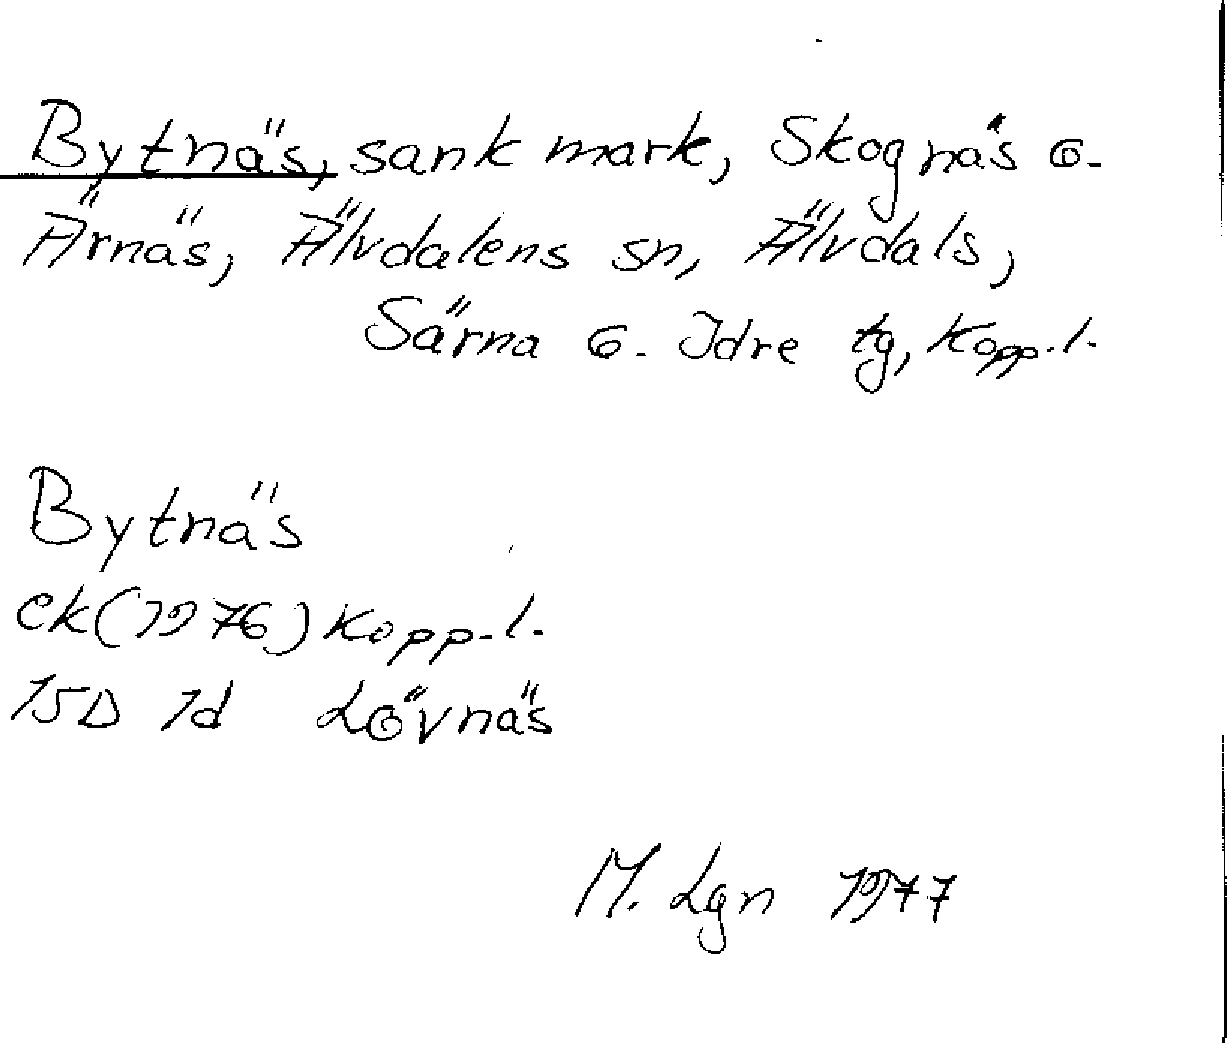 Bytnäs, sank mark, Skognäs o.
Ärnäs, Älvdalens sn, Älvdals,
Särna o. Idre tg, Kopp.l.
Bytnäs
ek(1976) Kopp.l.
15D 1d Lövnäs
M. Lgn 1977